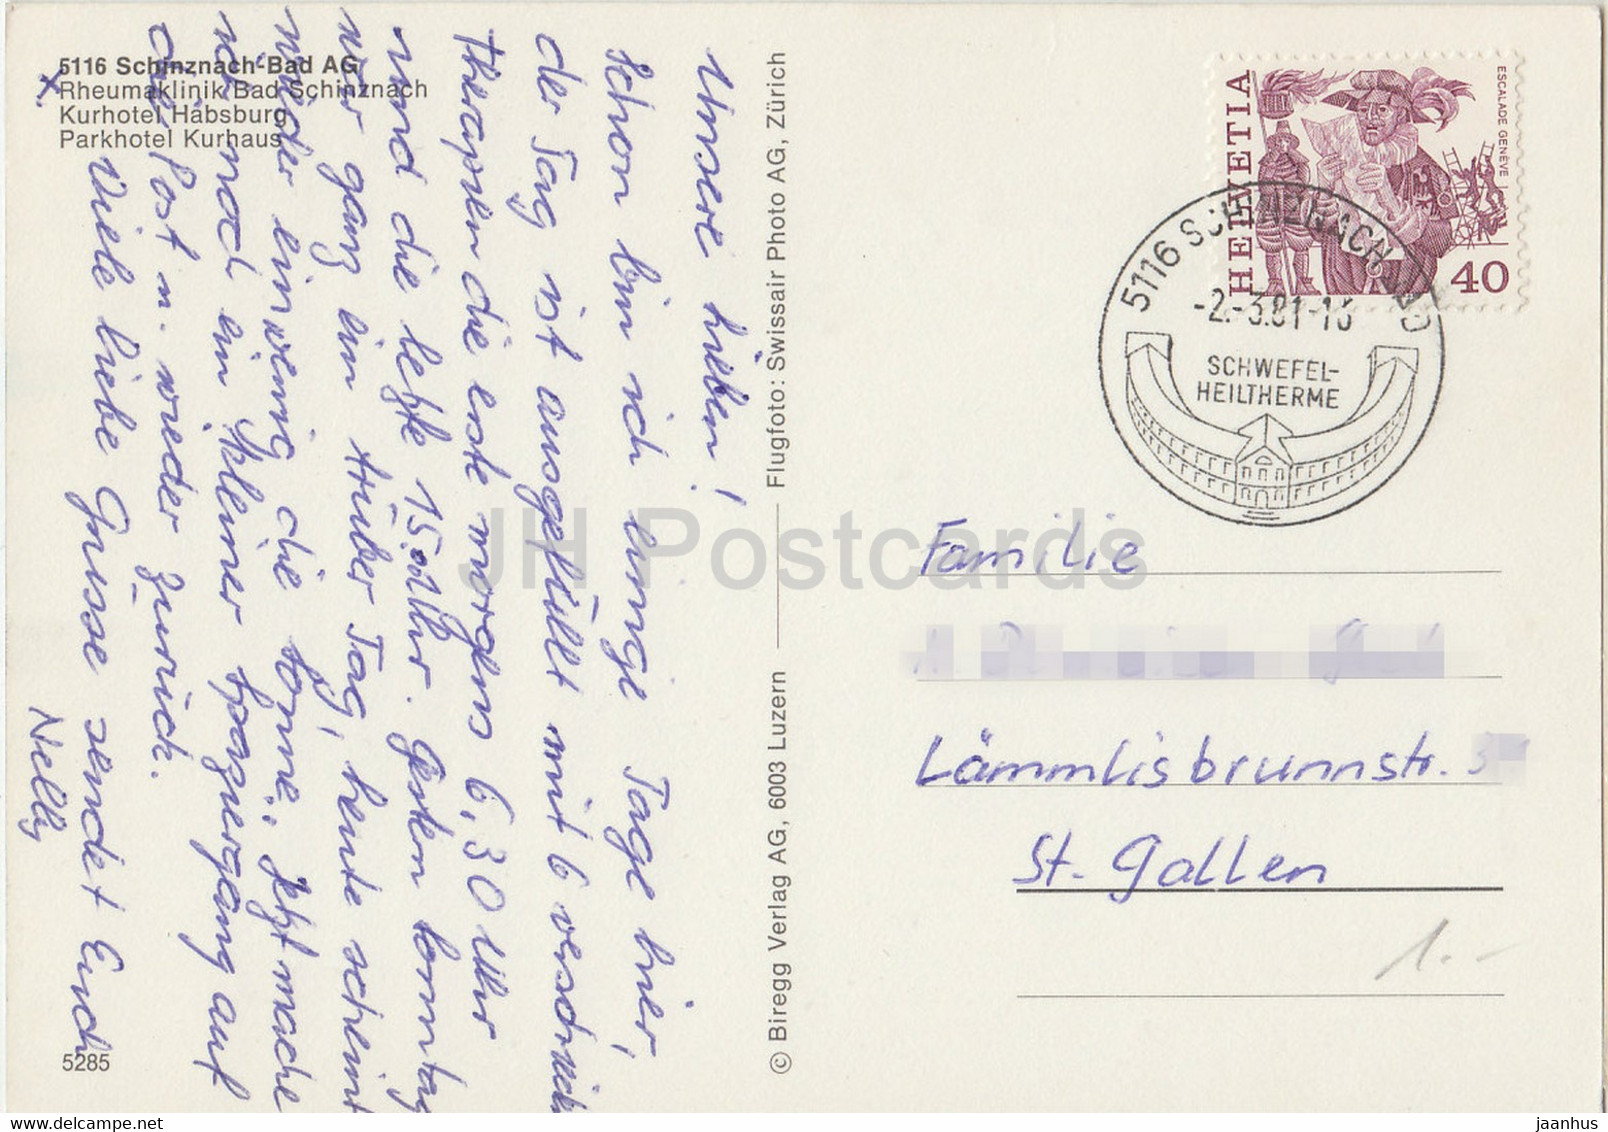 5116 Schinznach-Bad AG
Rheumaklinik Bad Schinznach
Kurhotel Habsburg
Parkhotel Kurhaus
Unsere lieben!
Schon bin ich einige Tage hier,
der Tag ist ausgefüllt mit 6 verschied
Therapien die erste morgens 6,30 Uhr
und die letzte 15.00 Uhr. Gestern Sonntag
war ganz ein trüber Tag, heute scheint
wieder einwenig die Sonne. Jetzt mache
ich noch ein kleiner Spaziergang auf
die Post u. wieder zurück.
Viele liebe Grüsse sendet Euch
Nelly
5285
Flugfoto: Swissair Photo AG, Zürich
© Biregg Verlag AG, 6003 Luzern
HELVETIA
ESCALADE GENÈVE
40
5116 SCHINZNACH BAD
-2.-3.81-16
SCHWEFEL-
HEILTHERME
Familie
Lämmlisbrunnstr.
St. Gallen
1.-
JH Postcards
delcampe.net
jaanhus